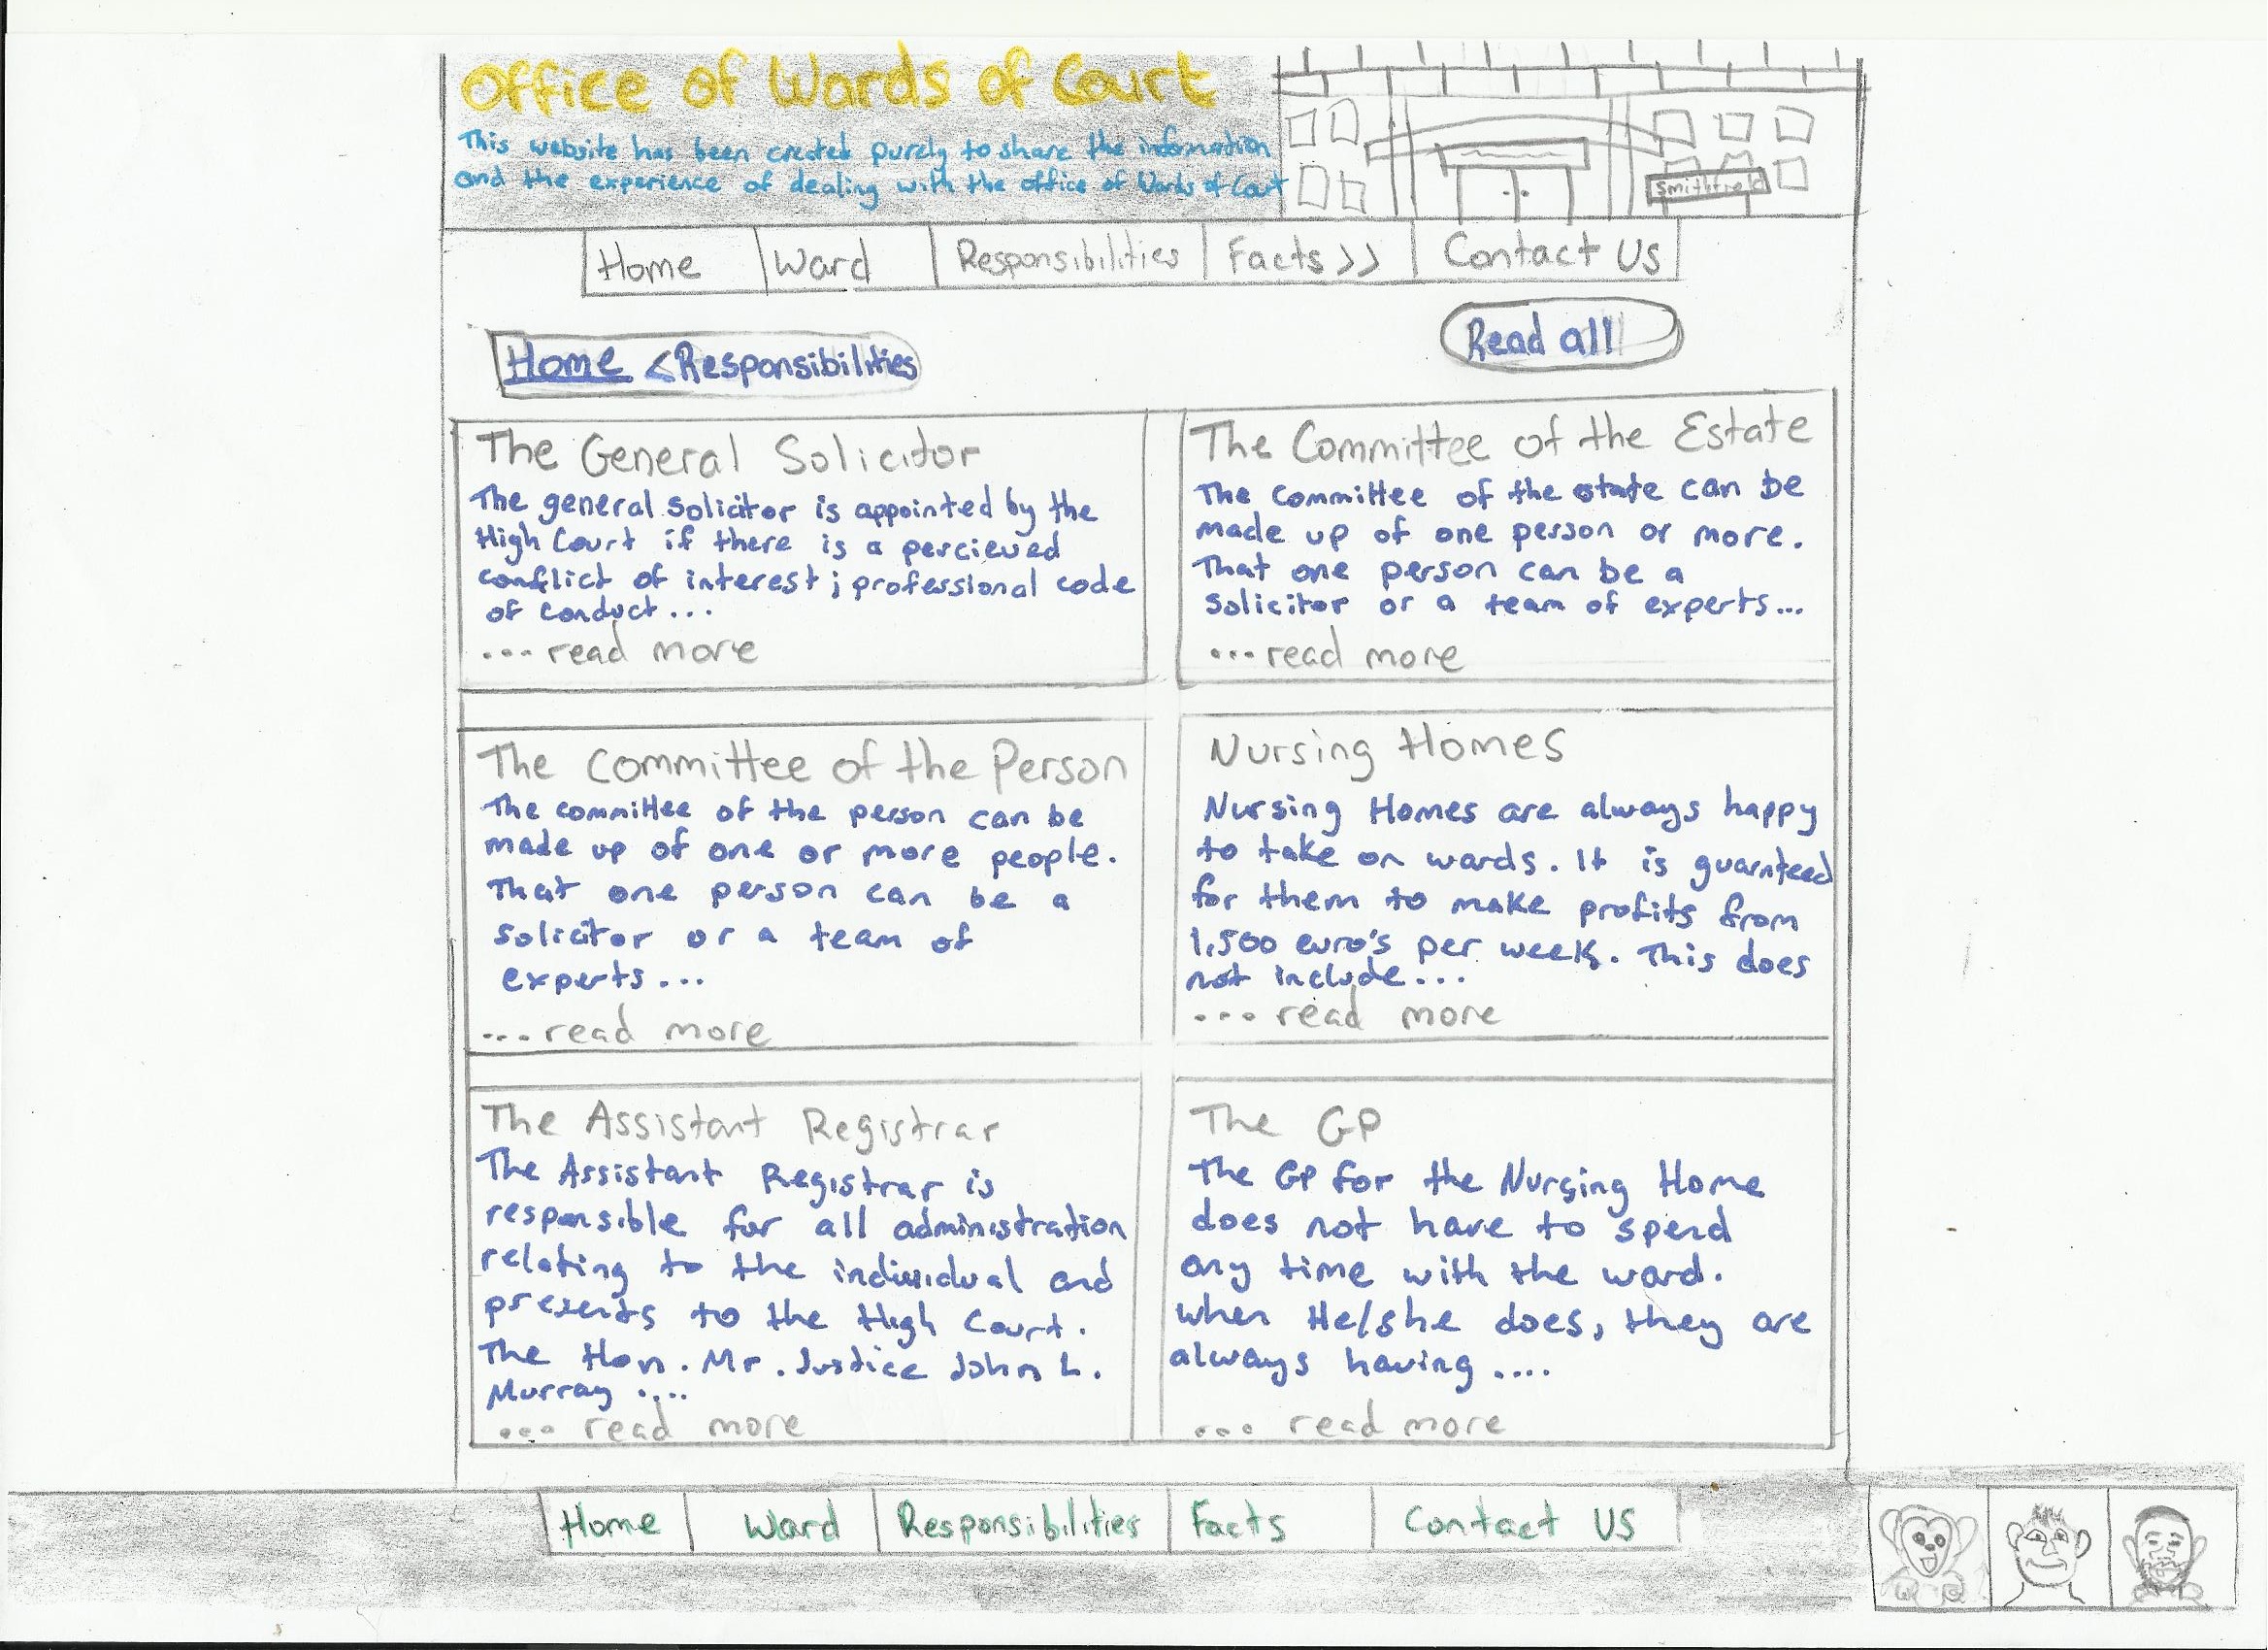 Office of Wards of Court
This website has been created purely to share the information
and the experience of dealing with the office of Wards of Court
Smithfield
Home Ward Responsibilities Facts >> Contact Us
Home < Responsibilities
Read all
The General Solicitor
The general solicitor is appointed by the
High Court if there is a percieved
conflict of interest ; professional code
of conduct...
...read more
The Committee of the Estate
The committee of the estate can be
made up of one person or more.
That one person can be a
solicitor or a team of experts...
...read more
The Committee of the Person
The committee of the person can be
made up of one or more people.
That one person can be a
solicitor or a team of
experts...
...read more
Nursing Homes
Nursing Homes are always happy
to take on wards. It is guarnteed
for them to make profits from
1,500 euro's per week. This does
not include...
...read more
The Assistant Registrar
The Assistant Registrar is
responsible for all administration
relating to the individual and
presents to the High Court.
The Hon. Mr. Justice John L.
Murray ....
... read more
The GP
The GP for the Nursing Home
does not have to spend
any time with the ward.
when He/she does, they are
always having ....
... read more
Home Ward Responsibilities Facts Contact US